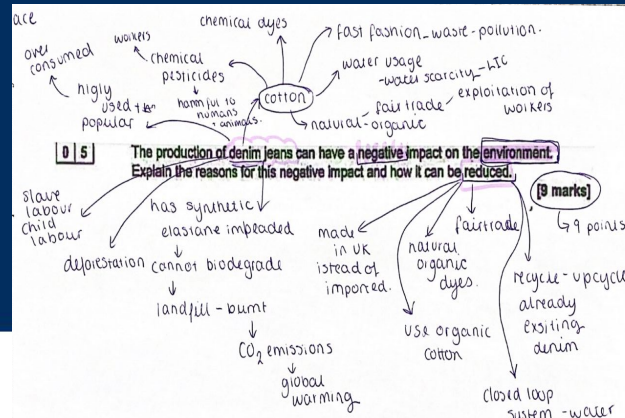 ace
chemical dyes
fast fashion - waste - pollution.
over
consumed
workers
chemical
pesticides
water usage
- water scarcity - LIC
higly
used +
popular
harmful to
humans
+ animals.
cotton
fairtrade - exploitation of
workers
natural - organic
0 5
The production of denim jeans can have a negative impact on the environment.
Explain the reasons for this negative impact and how it can be reduced.
[9 marks]
9 points
slave
labour
child
labour
deforestation
has synthetic
elastane impeaded
cannot biodegrade
landfill - burnt
CO2 emissions
global
warming
made
in UK
istead of
imported.
natural
organic
dyes.
fairtrade
use organic
cotton
recycle - upcycle
already
exsiting
denim
closed loop
system - water